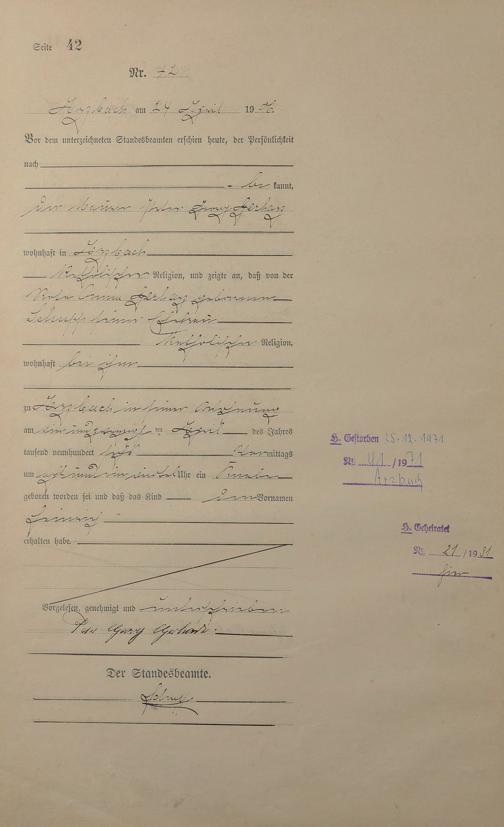 Seite 42
Nr. 42
Arzbach am 24 April 1906
Vor dem unterzeichneten Standesbeamten erschien heute, der Persönlichkeit
nach
be kannt,
der Maurer Peter Georg
wohnhaft in Arzbach
katholischer Religion, und zeigte an, daß von der
Anna geborenen
seiner Ehefrau
katholischer Religion,
wohnhaft bei ihm
zu Arzbach in seiner Wohnung
am April des Jahres
tausend neunhundert sechs mittags
um acht und ein viertel Uhr ein Knabe
geboren worden sei und daß das Kind den Vornamen
erhalten habe.
Vorgelesen, genehmigt und unterschrieben
Georg
Der Standesbeamte.
H. Gestorben 25.12.1971
Nr. 41/1971
Arzbach
H. Geheiratet
Nr. 21/1931
hier